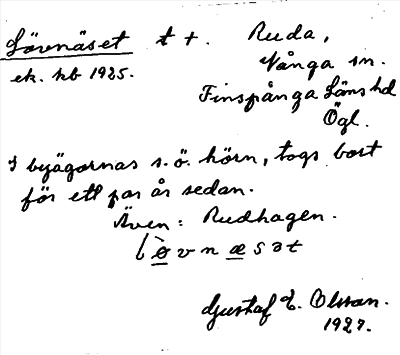 Lövnäset t +. Ruda,
ek. kb 1925. Vånga sn.
Finspånga Läns hd
Ögl.
I byägornas s.ö. hörn, togs bort
för ett par år sedan.
Även: Rudhagen.
lòvnæsət
Gustaf E. Olsson.
1927.